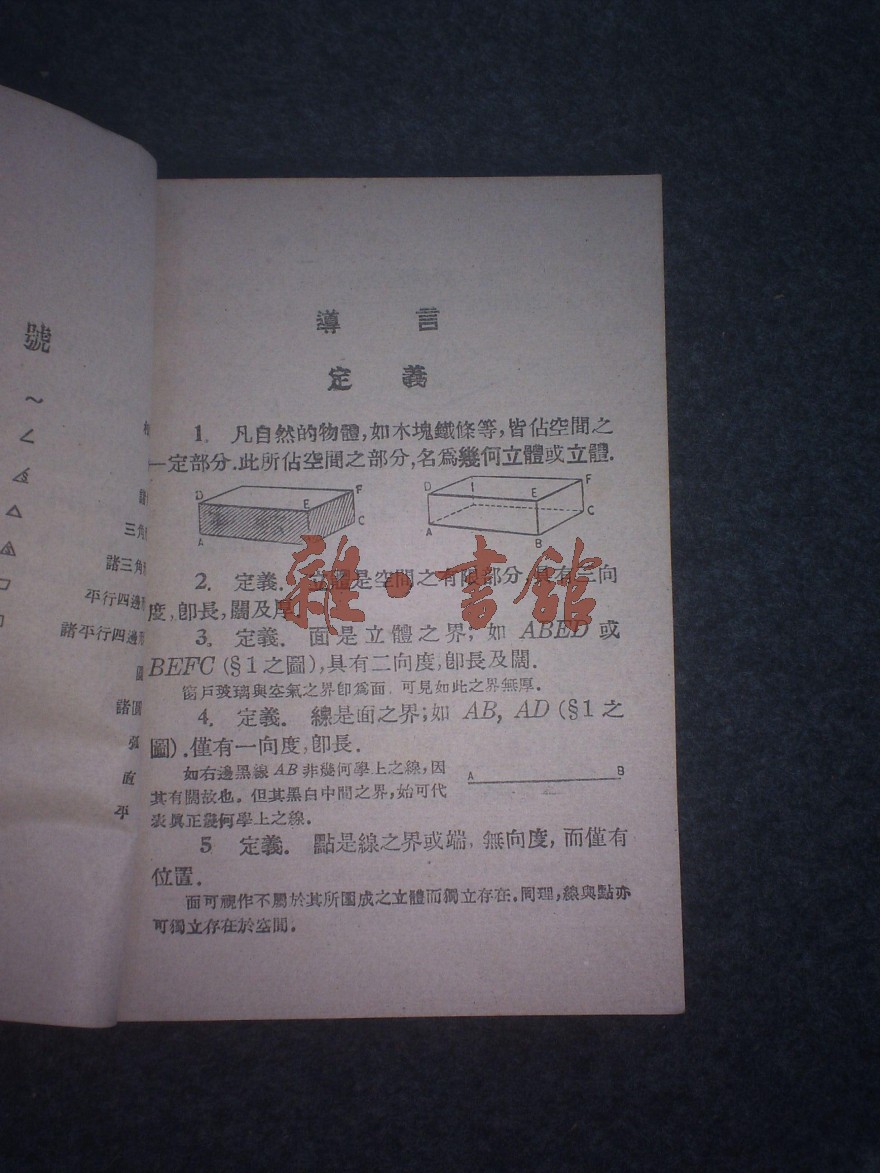 號
～
∠
△
三角
諸三角形
平行四邊形
諸平行四邊形
圓
諸圓
弧
直
平
導言
定義
1. 凡自然的物體,如木塊鐵條等,皆佔空間之
一定部分.此所佔空間之部分,名爲幾何立體或立體.
D F E C A B
D F E C A B
2. 定義. 立體是空間之有限部分,具有三向
度,卽長,闊及厚.
3. 定義. 面是立體之界; 如 ABED 或
BEFC (§1之圖),具有二向度,卽長及闊.
窗戶玻璃與空氣之界卽爲面, 可見如此之界無厚.
4. 定義. 線是面之界;如 AB, AD (§1之
圖).僅有一向度,卽長.
如右邊黑線 AB 非幾何學上之線,因
其有闊故也. 但其黑白中間之界,始可代
表眞正幾何學上之線.
A B
5 定義. 點是線之界或端, 無向度, 而僅有
位置.
面可視作不屬於其所圍成之立體而獨立存在.同理,線與點亦
可獨立存在於空間.
雜·書館